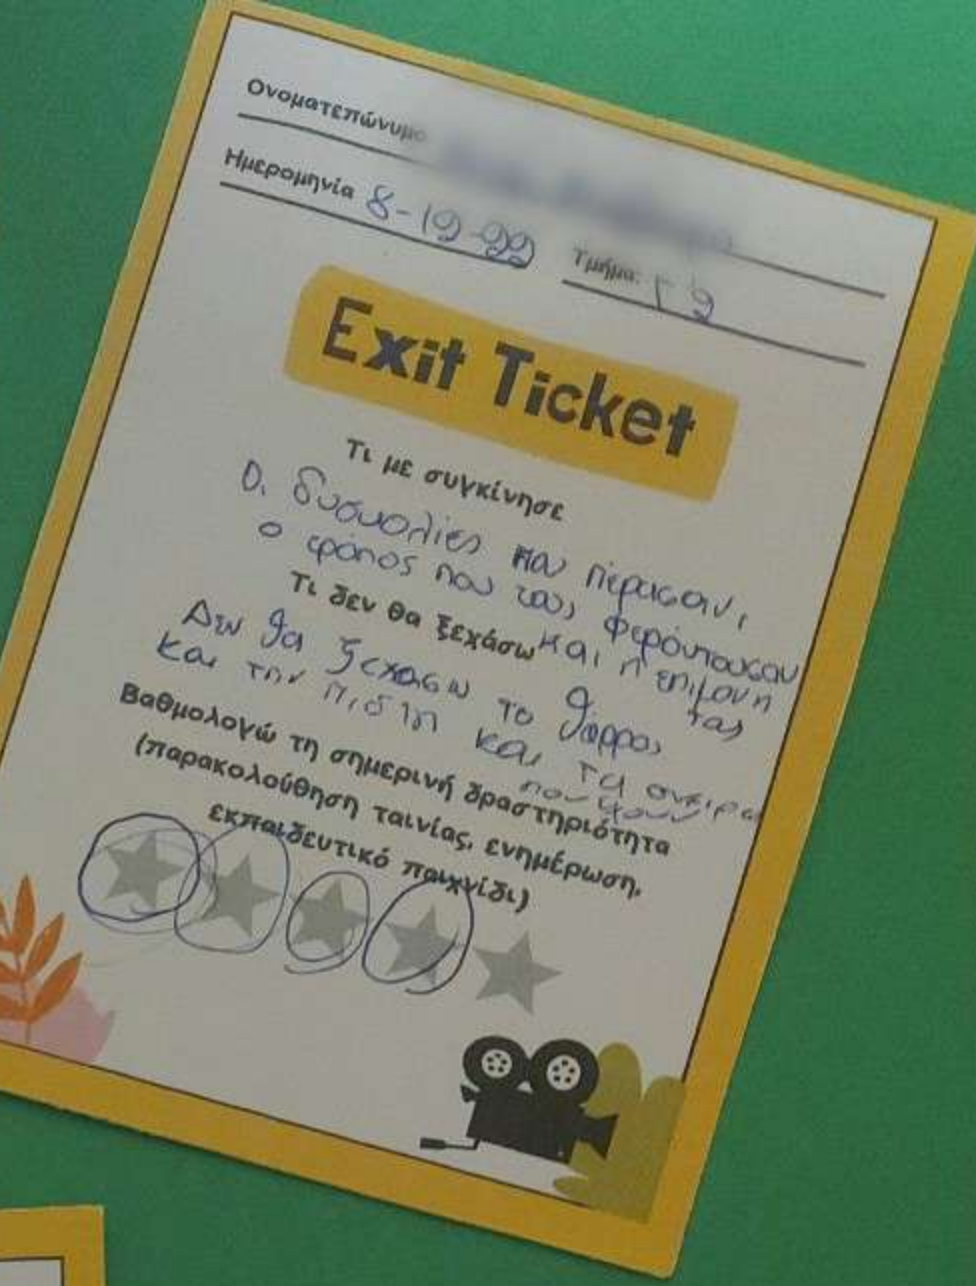 Ονοματεπώνυμο
Ημερομηνία 8-12-22 Τμήμα: Γ2
Exit Ticket
Τι με συγκίνησε
Οι δυσκολίες που πέρασαν,
ο τρόπος που τους φερόντουσαν
και η επιμονή
τους
Τι δεν θα ξεχάσω
Δεν θα ξεχασω το θάρρος
και την και τα ονειρα
που
Βαθμολογώ τη σημερινή δραστηριότητα
(παρακολούθηση ταινίας, ενημέρωση,
εκπαιδευτικό παιχνίδι)